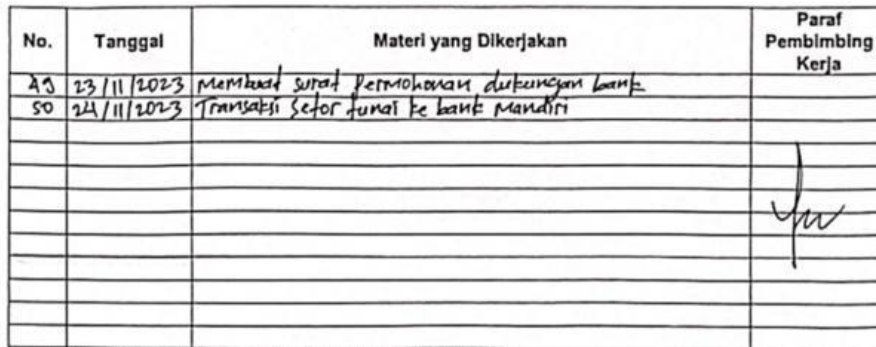 No. Tanggal Materi yang Dikerjakan Paraf Pembimbing Kerja
49 23/11/2023 Membuat surat Permohonan dukungan bank
50 24/11/2023 Transaksi Setor tunai ke bank Mandiri